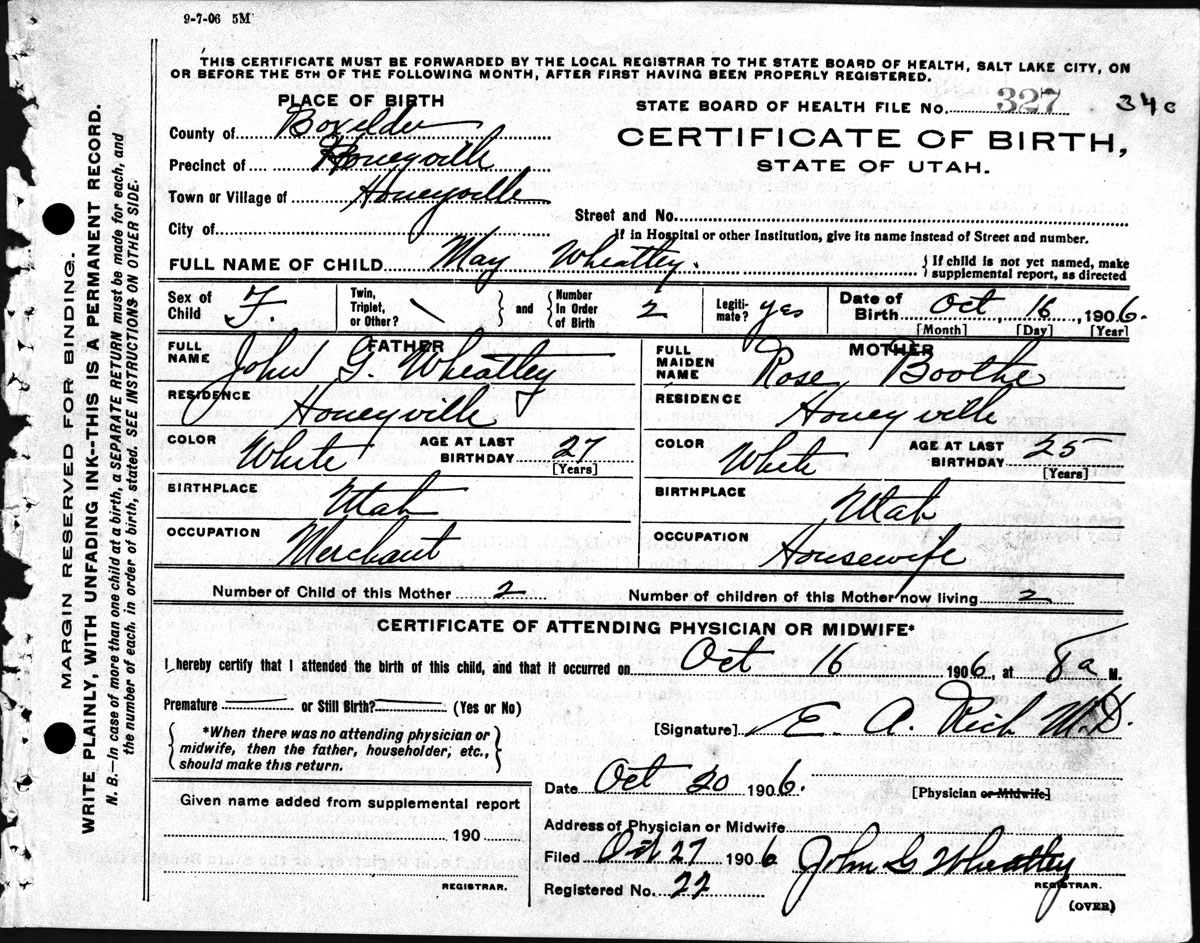 9-7-06 5M
THIS CERTIFICATE MUST BE FORWARDED BY THE LOCAL REGISTRAR TO THE STATE BOARD OF HEALTH, SALT LAKE CITY, ON
OR BEFORE THE 5TH OF THE FOLLOWING MONTH, AFTER FIRST HAVING BEEN PROPERLY REGISTERED.
PLACE OF BIRTH
STATE BOARD OF HEALTH FILE No. 327 34c
County of Boxelder
CERTIFICATE OF BIRTH,
STATE OF UTAH.
Precinct of Honeyville
Town or Village of Honeyville
Street and No.
City of
If in Hospital or other Institution, give its name instead of Street and number.
FULL NAME OF CHILD May Wheatley. { If child is not yet named, make
supplemental report, as directed
Sex of Child F. Twin, Triplet, or Other? \ } and { Number in Order of Birth 2 Legiti- mate? yes Date of Birth Oct, 16, 1906.
[Month] [Day] [Year]
FATHER
FULL NAME John G. Wheatley
RESIDENCE Honeyville
COLOR White AGE AT LAST BIRTHDAY 27
[Years]
BIRTHPLACE Utah
OCCUPATION Merchant
MOTHER
FULL MAIDEN NAME Rose Boothe
RESIDENCE Honeyville
COLOR White AGE AT LAST BIRTHDAY 25
[Years]
BIRTHPLACE Utah
OCCUPATION Housewife
Number of Child of this Mother 2 Number of children of this Mother now living 2
CERTIFICATE OF ATTENDING PHYSICIAN OR MIDWIFE*
I hereby certify that I attended the birth of this child, and that it occurred on Oct 16 1906, at 8a M.
Premature or Still Birth? (Yes or No)
[Signature] E. A. Rich M.D.
{ *When there was no attending physician or
midwife, then the father, householder, etc.,
should make this return. }
Date Oct 20 1906.
[Physician or Midwife]
Given name added from supplemental report
190
REGISTRAR.
Address of Physician or Midwife
Filed Oct 27 1906 John G Wheatley
REGISTRAR.
Registered No. 22
(OVER)
MARGIN RESERVED FOR BINDING.
WRITE PLAINLY, WITH UNFADING INK--THIS IS A PERMANENT RECORD.
N. B.—In case of more than one child at a birth, a SEPARATE RETURN must be made for each, and
the number of each, in order of birth, stated. SEE INSTRUCTIONS ON OTHER SIDE.